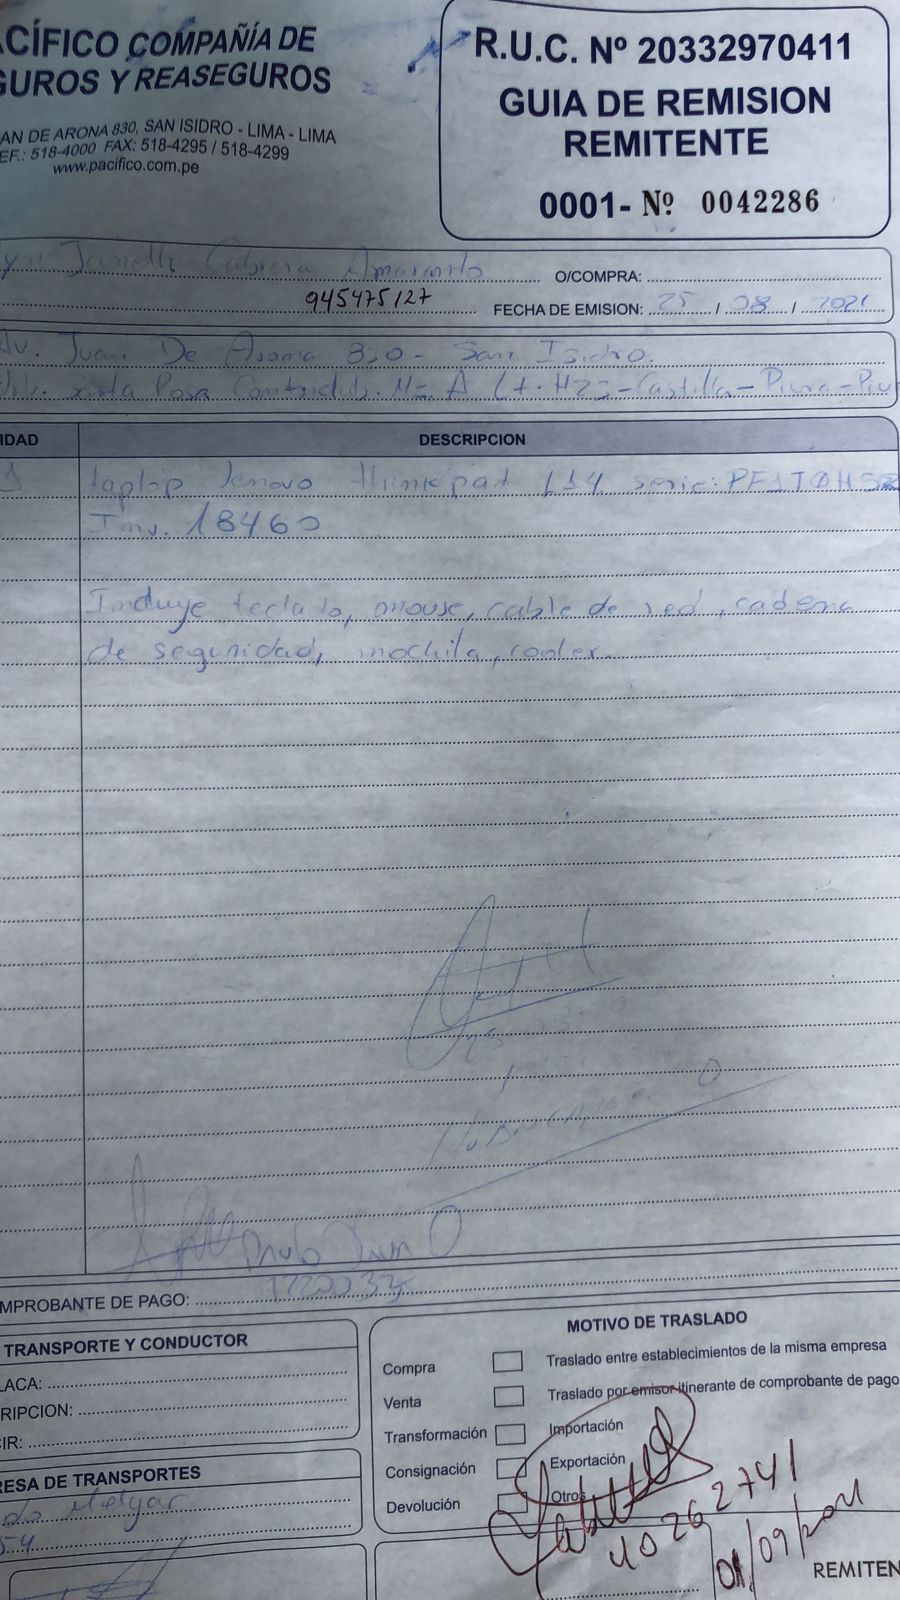 ACÍFICO COMPAÑÍA DE
GUROS Y REASEGUROS
AN DE ARONA 830, SAN ISIDRO - LIMA - LIMA
EF.: 518-4000 FAX: 518-4295 / 518-4299
www.pacifico.com.pe
R.U.C. Nº 20332970411
GUIA DE REMISION
REMITENTE
0001- Nº 0042286
Janeth Cabrera Amaranto
O/COMPRA:
945475127
FECHA DE EMISION: 25 / 08 / 2021
Av. Juan De Arona 830 - San Isidro.
Santa Rosa Mz A Lt. - Castilla - Piura - Piu
IDAD DESCRIPCION
1 Laptop Lenovo Thinkpad L14 serie:
Inv. 18460
Incluye teclado, mouse, cable de red, cadena
de seguridad, mochila, cooler
MPROBANTE DE PAGO:
TRANSPORTE Y CONDUCTOR
LACA:
RIPCION:
CIR:
RESA DE TRANSPORTES
do Melgar
54
MOTIVO DE TRASLADO
Compra
Venta
Transformación
Consignación
Devolución
Traslado entre establecimientos de la misma empresa
Traslado por emisor itinerante de comprobante de pago
Importación
Exportación
Otros
40262741
01/09/2021
REMITEN